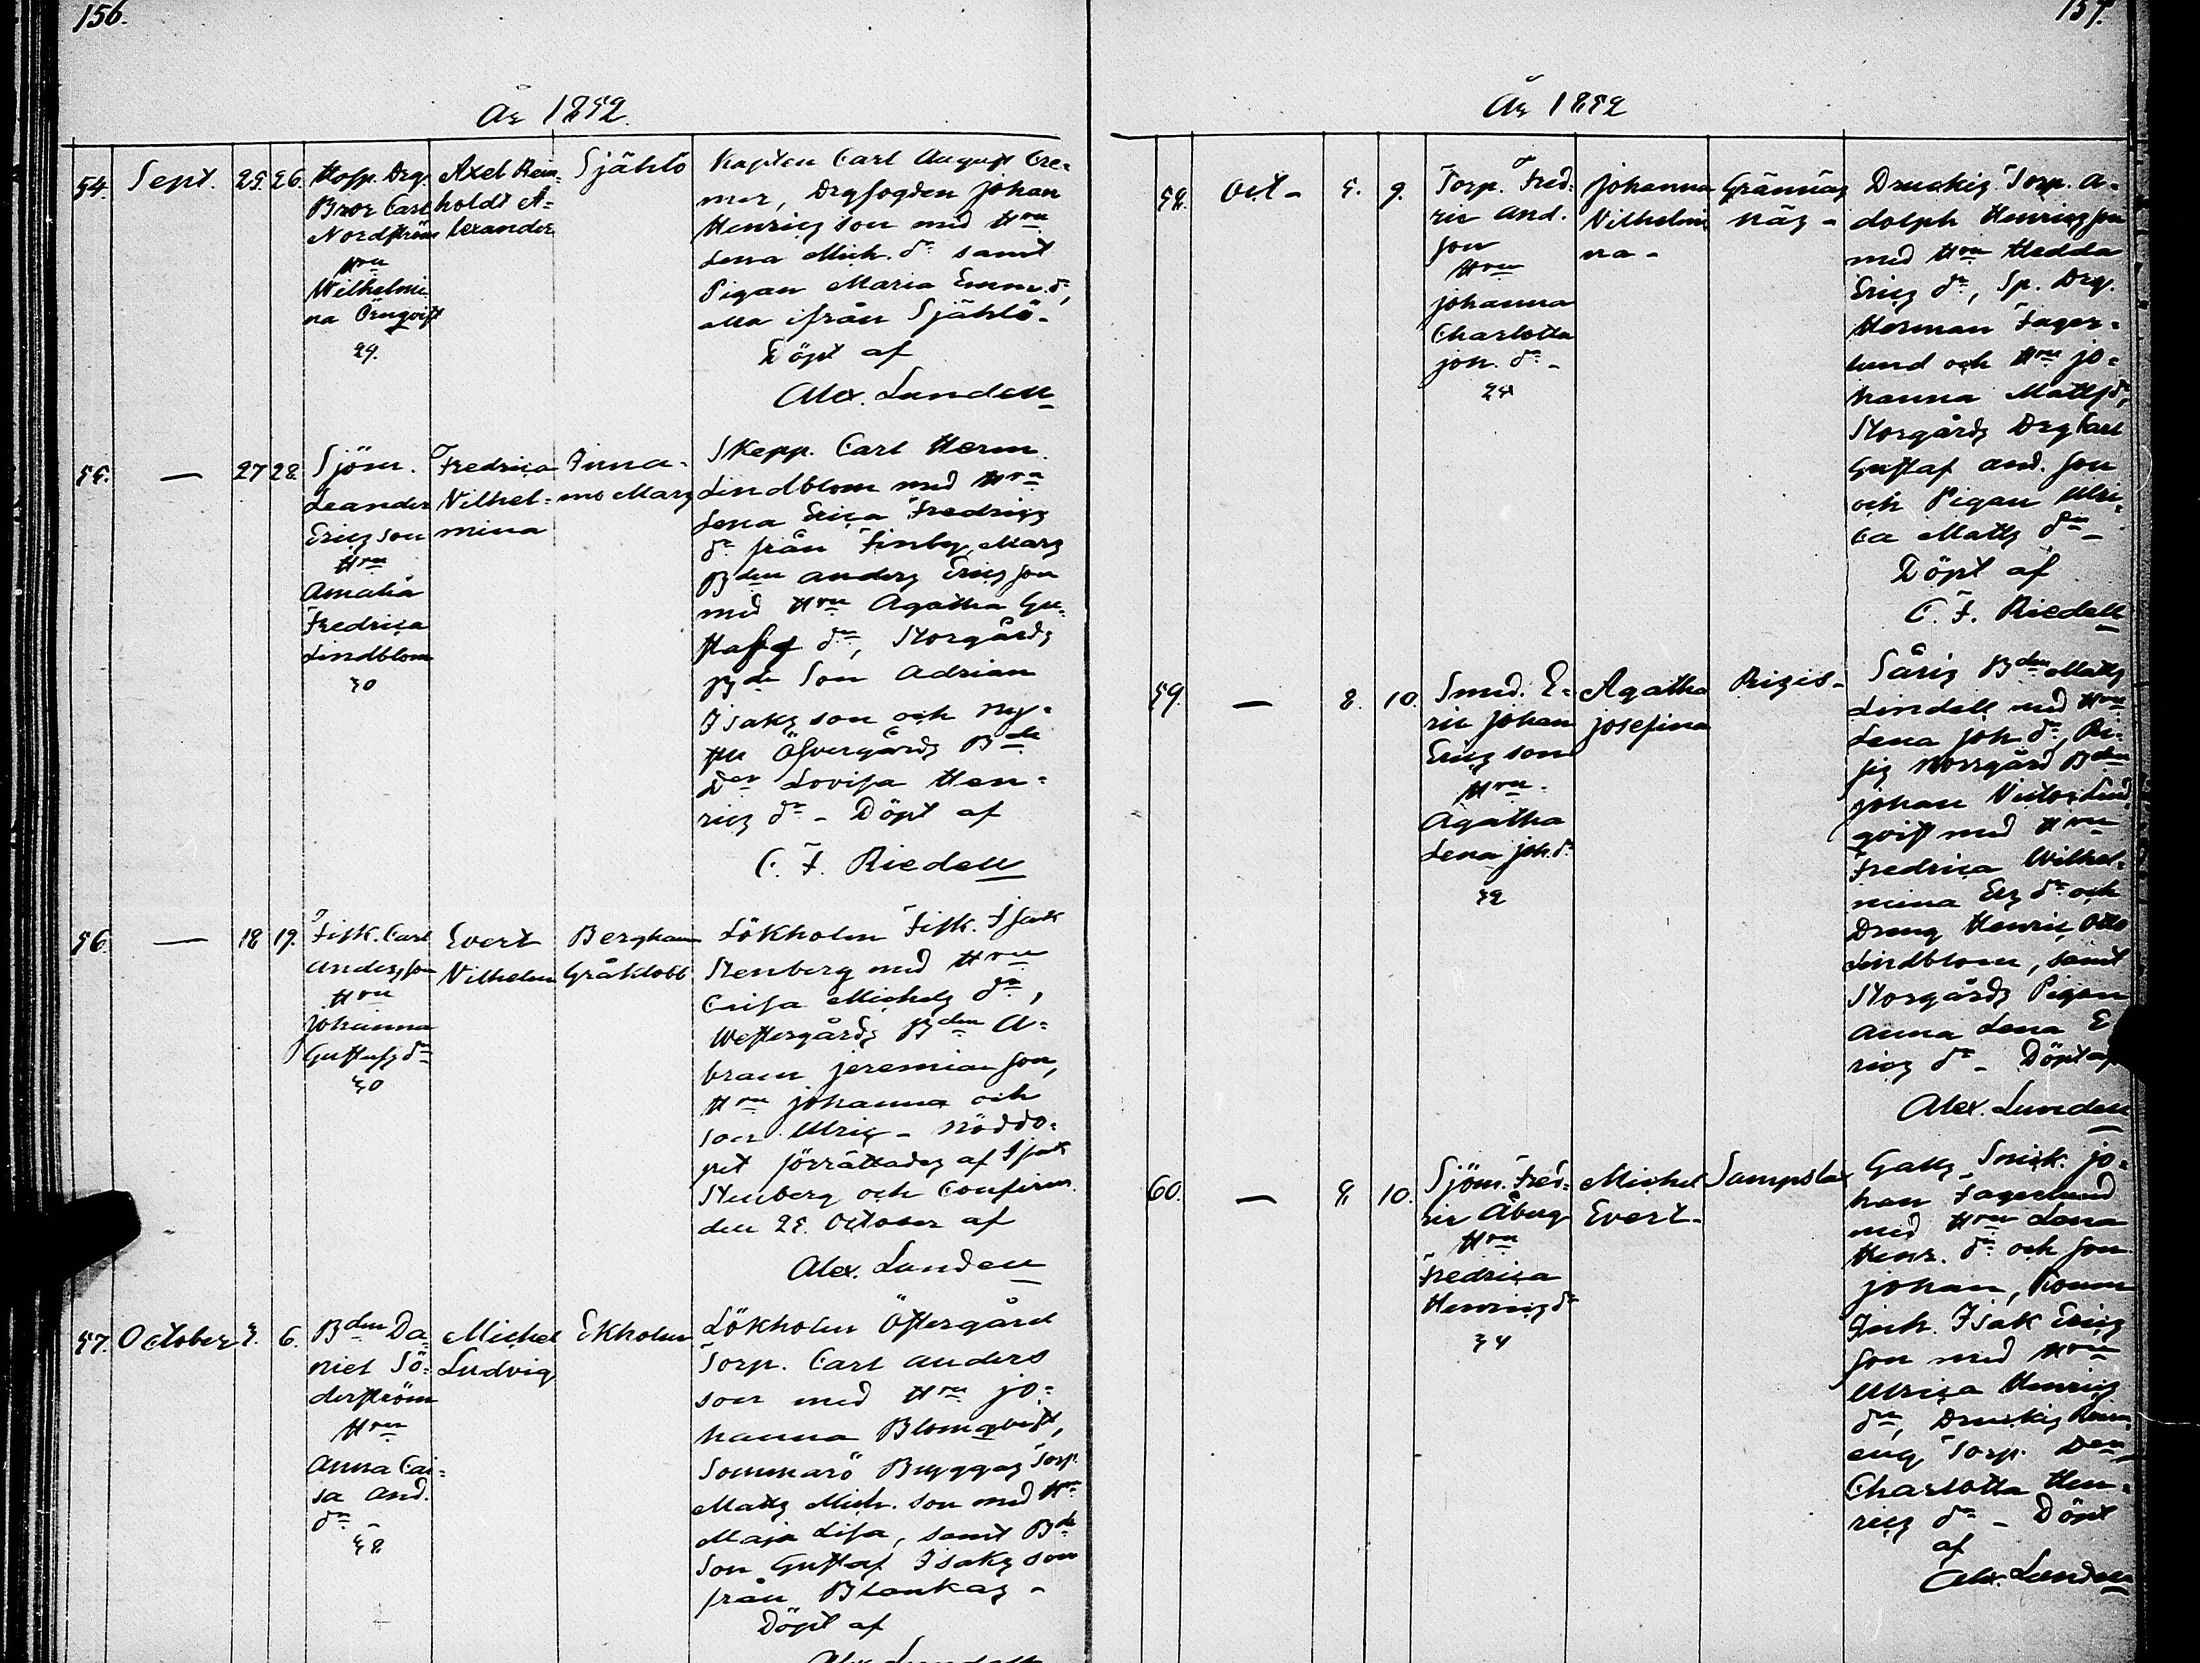 156.
År 1852.
54. Sept. 25. 26. Hosp. Drg. Bror Carl Nordström Hru Wilhelmi na Örnqvist 29.
Axel Rein= holdt A= lexander
Själslö
Kapten Carl August Cre=
mer, Drgfogden Johan
Henricsson med Hru
Lena Mich. dr samt
Pigan Maria Emm. dr,
alla ifrån Själslö.
Döpt af
Alex. Lundell
55. — 27 28. Sjöm. Leander Ericsson Hru Amalia Fredrica Lindblom 30
Fredrica Vilhel= mina
Finna= mo Mars
Skepp. Carl Herm.
Lindblom med Hru
Lena Erica Fredrics
dr från Finby, Mars
Bden Anders Ericsson
med Hru Agatha Gu=
stafs dr, Storgårds
Bde Son Adrian
Isaksson och
Öfvergårds Bde
Dor Lovisa Hen=
rics dr - Döpt af
C. F. Riedell
56. — 18 19. Fisk. Carl Andersson Hru Johanna Gustafs dr 30
Evert Vilhelm
Bergham Gråklobb
Lökholm Fisk. Isak
Stenberg med Hru
Cajsa Michels dr,
Westergårds Bden A=
bram Jeremiasson,
Hru Johanna och
son Ulric - nöddo=
pet förrättades af Isak
Stenberg och Confirm.
den 25 October af
Alex. Lundell
57. October 3. 6. Bden Da= niel Sö= derström Hru Anna Cai= sa And. dr 38
Michel Ludvig
Ekholm
Lökholm Östergård
Torp. Carl Anders
son med Hru Jo=
hanna Blomqvist,
Sommarö Byggas Torp.
Matts Mich. son med Hru
Maja Lisa, samt Bde
Son Gustaf Isaksson
från Blankas -
Döpt af
Alex. Lundell
157.
År 1852
58. Oct - 5. 9. Torp. Fred= ric And. son Hru Johanna Charlotta Joh. dr - 24
Johanna Vilhelmi na -
Grännäs näs -
Druckis Torp. A=
dolph Henricsson
med Hru Hedda
Erics dr, Sp. Drg.
Herman Fager=
lund och Hru Jo=
hanna Matts dr,
Storgårds Drg Carl
Gustaf And. son
och Pigan Ulri=
ca Matts dr -
Döpt af
C. F. Riedell
59. — 8. 10. Smed. E= ric Johan Ericsson Hru Agatha Lena Joh. dr 32
Agatha Josefina
Rizis -
Såris Bden Matts
Lindell med Hru
Lena Joh. dr, Ri=
sis Norrgård Bden
Johan Victor Lind
qvist med Hru
Fredrica Wilhel=
mina Ers dr och
Dreng Henric Otto
Lindblom, samt
Storgårds Pigan
Anna Lena E
rics dr - Döpt af
Alex. Lundell
60. — 8 10. Sjöm. Fred= ric Åberg Hru Fredrica Henrics dr 34
Michel Evert -
Sampslax
Galts Snick. Jo=
han Fagerlund
med Hru Lena
Henr. dr och son
Johan,
Inh. Isak Erics
son med Hru
Ulrica Henrics
dr, Druckis
Torp. Den
Charlotta Hen=
rics dr - Döpt
af
Alex. Lundell